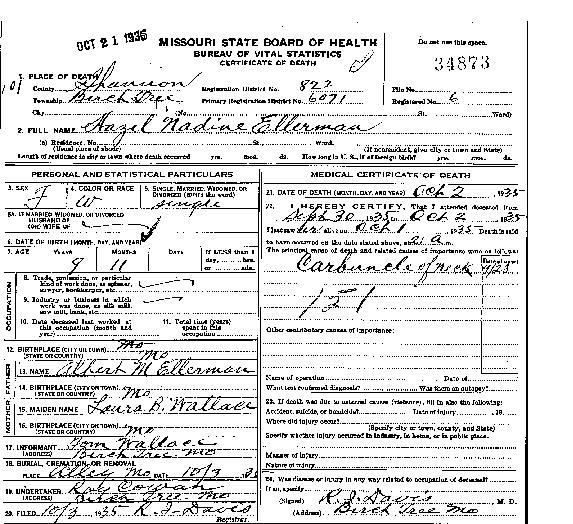 OCT 21 1935
MISSOURI STATE BOARD OF HEALTH
BUREAU OF VITAL STATISTICS
CERTIFICATE OF DEATH
Do not use this space.
34873
1. PLACE OF DEATH
County Shannon Registration District No. 822 File No.
Township Birch Tree Primary Registration District No. 6071 Registered No. 6
City No. St. Ward)
2. FULL NAME Hazel Nadine Ellerman
(a) Residence, No. St. Ward.
(Usual place of abode) (If nonresident, give city or town and State)
Length of residence in city or town where death occurred yrs. mos. ds. How long in U. S., if of foreign birth? yrs. mos. ds.
PERSONAL AND STATISTICAL PARTICULARS
3. SEX F
4. COLOR OR RACE W
5. SINGLE, MARRIED, WIDOWED, OR DIVORCED (write the word) Single
5A. IF MARRIED, WIDOWED, OR DIVORCED
HUSBAND OF
(OR) WIFE OF
6. DATE OF BIRTH (MONTH, DAY, AND YEAR)
7. AGE YEARS 9 MONTHS 11 DAYS If LESS than 1 day, hrs. or min.
OCCUPATION
8. Trade, profession, or particular kind of work done, as spinner, sawyer, bookkeeper, etc.
9. Industry or business in which work was done, as silk mill, saw mill, bank, etc.
10. Date deceased last worked at this occupation (month and year)
11. Total time (years) spent in this occupation
12. BIRTHPLACE (CITY OR TOWN) Mo
(STATE OR COUNTRY) Mo
FATHER
13. NAME Albert M Ellerman
14. BIRTHPLACE (CITY OR TOWN) Mo
(STATE OR COUNTRY)
MOTHER
15. MAIDEN NAME Laura B. Wallace
16. BIRTHPLACE (CITY OR TOWN)
(STATE OR COUNTRY) Mo
17. INFORMANT Tom Wallace
(ADDRESS) Birch Tree Mo
18. BURIAL, CREMATION, OR REMOVAL
PLACE Alley Mo DATE 10/3 35
19. UNDERTAKER Ray Cowan
(ADDRESS) Birch Tree Mo
20. FILED 10/3 1935 R. I. Davis
Registrar.
MEDICAL CERTIFICATE OF DEATH
21. DATE OF DEATH (MONTH, DAY, AND YEAR) Oct 2 1935
22. I HEREBY CERTIFY, That I attended deceased from
Sept 30 1935 to Oct 2 1935
I last saw her alive on Oct 1 1935 Death is said
to have occurred on the date stated above, at a. m.
The principal cause of death and related causes of importance were as follows:
Date of onset
Carbuncle of neck 9/28
151
Other contributory causes of importance:
Name of operation Date of
What test confirmed diagnosis? Was there an autopsy?
23. If death was due to external causes (violence), fill in also the following:
Accident, suicide, or homicide? Date of injury 19
Where did injury occur?
(Specify city or town, county, and State)
Specify whether injury occurred in industry, in home, or in public place.
Manner of injury
Nature of injury
24. Was disease or injury in any way related to occupation of deceased?
If so, specify
(Signed) R. I. Davis M. D.
(Address) Birch Tree Mo